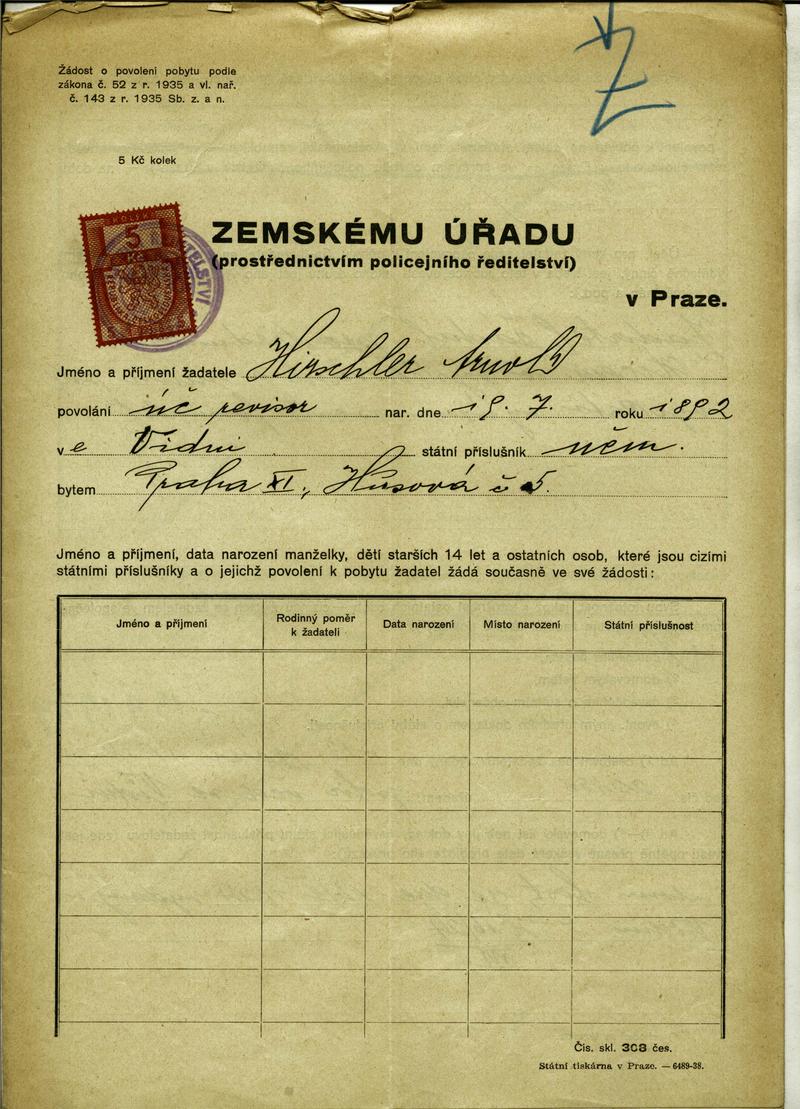 Žádost o povolení pobytu podle
zákona č. 52 z r. 1935 a vl. nař.
č. 143 z r. 1935 Sb. z. a n.
5 Kč kolek
KOLEK
5
Kč
ZEMSKÉMU ÚŘADU
(prostřednictvím policejního ředitelství)
v Praze.
Jméno a příjmení žadatele Hirschler Arnold
povolání úč revisor nar. dne 19. 7. roku 1892
v e Vídni státní příslušník něm.
bytem Praha XI., Husová č 5.
Jméno a příjmení, data narození manželky, dětí starších 14 let a ostatních osob, které jsou cizími
státními příslušníky a o jejichž povolení k pobytu žadatel žádá současně ve své žádosti:
Jméno a příjmení
Rodinný poměr
k žadateli
Data narození
Místo narození
Státní příslušnost
Čís. skl. 308 čes.
Státní tiskárna v Praze. — 6489-38.